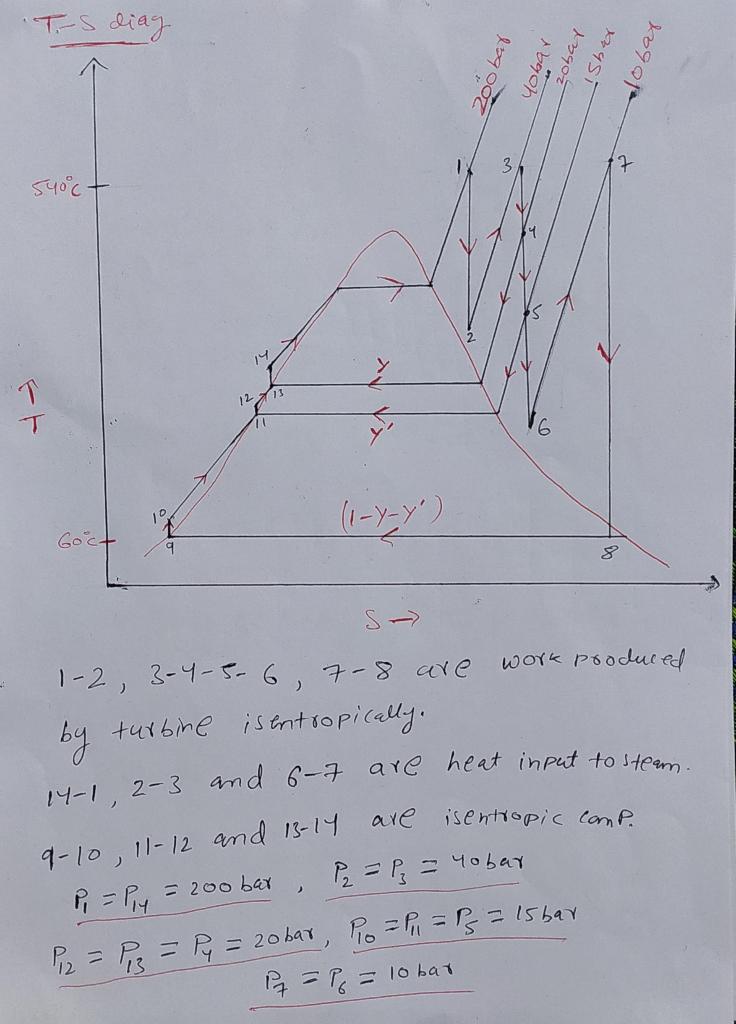 T-S diag
200bar
40bar
20bar
15bar
10bar
540°C
1
3
7
4
5
2
14
12
13
y
11
y'
6
↑
T
10
(1-y-y')
60°C
9
8
S →
1-2, 3-4-5-6, 7-8 are work produced
by turbine isentropically.
14-1, 2-3 and 6-7 are heat input to steam.
9-10, 11-12 and 13-14 are isentropic comp.
P₁ = P₁₄ = 200 bar, P₂ = P₃ = 40bar
P₁₂ = P₁₃ = P₄ = 20bar, P₁₀ = P₁₁ = P₅ = 15bar
P₇ = P₆ = 10 bar